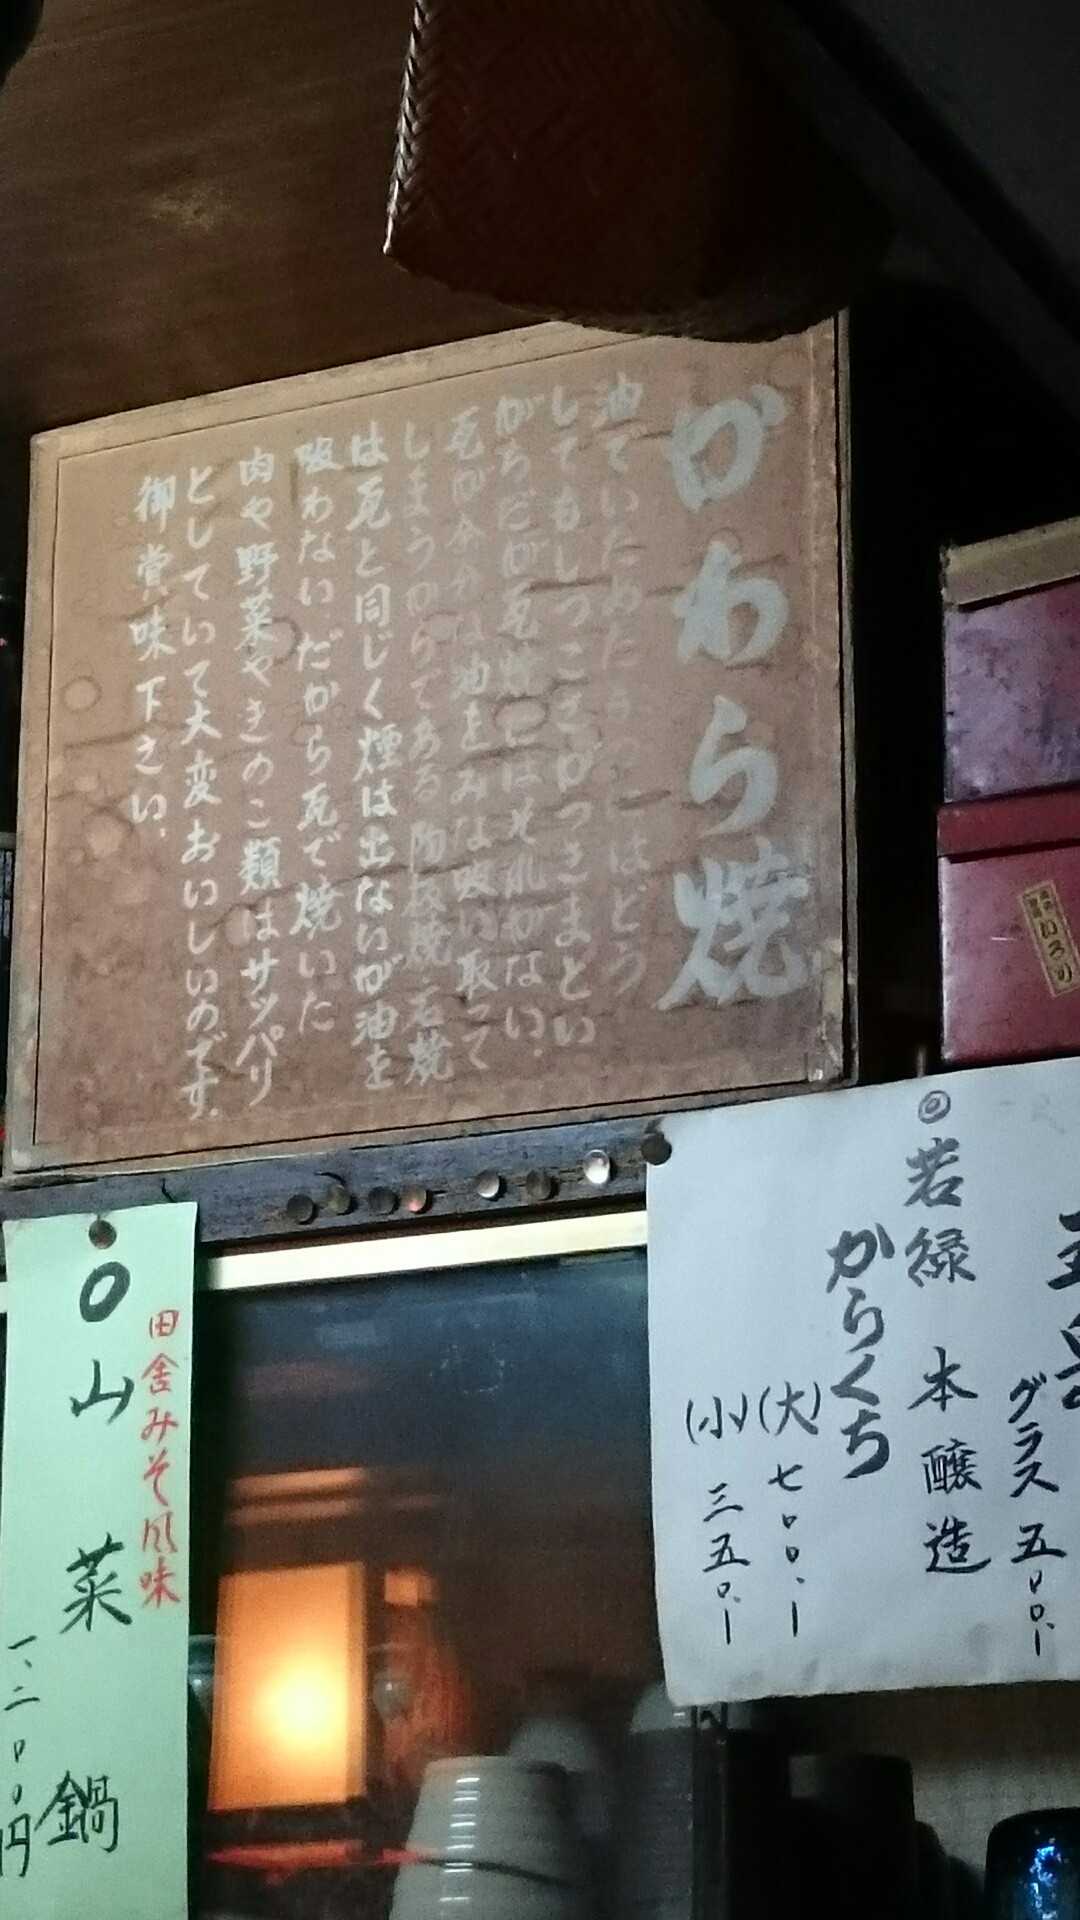 かわら焼
油でいためたものにはどう
してもしつこさがつきまとい
がちだが瓦焼にはそれがない、
瓦が余分な油をみな吸い取って
しまうからである 陶板焼 石焼
は瓦と同じく煙は出ないが油を
吸わない だから瓦で焼いた
肉や野菜やきのこ類はサッパリ
としていて大変おいしいのです、
御賞味下さい、
グラス 五〇〇、ー
◎若緑 本醸造
からくち
(大) 七〇〇、ー
(小) 三五〇、ー
田舎みそ風味
○山菜鍋
一、二〇〇円